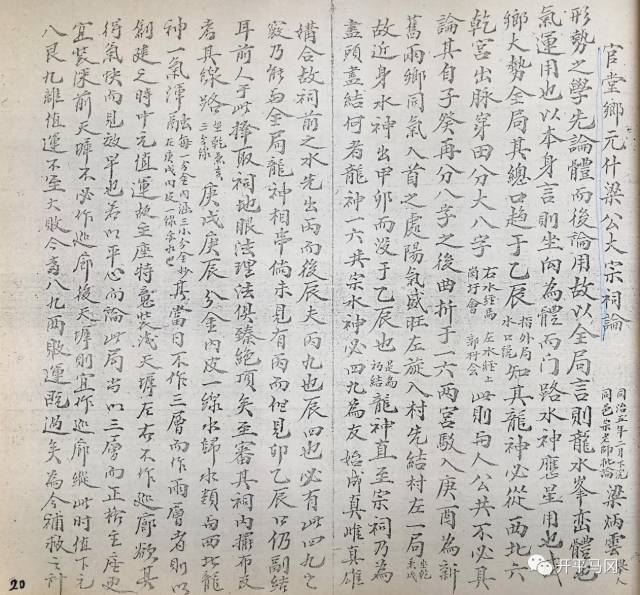 官堂鄉元什梁公大宗祠論 同治五年二月下浣 同邑宗老師批論 梁炳雲 舉人
形勢之學先論體而後論用故以全局言則龍水峯巒體也
氣運用也以本身言則坐向為體而門路水神應星用也
鄉大勢全局其總口趨于乙辰 指外局水口說 知其龍神必從西北六
乾宮出脉穿田分大八字 右水經馬岗圩會 左水經上 會 此則与人公共不必具
論其自子癸再分八字之後曲折于一六兩宮駁入庚酉為新
舊兩鄉同氣入首之處陽氣咸旺左旋入村先結村左一局 坐乾
故近身水神出甲卯而没于乙辰也 是為初結 龍神直至宗祠乃為
盡頭盡結何者龍神一六共宗水神必四九為友始成真雌真雄
媾合故祠前之水先出丙而後辰夫丙九也辰四也必有此四九之
竅乃能与全局龍神相亭倘未見有丙而但見卯乙辰口仍副結
耳前人于此擇取祠地眼法理法俱臻絶頂矣至審其祠內擺布及
看其線路 庚戌庚辰分金內皮一線水歸水類与西北龍
神一氣渾融 其當日不作三層而作兩層者則以
創建之時中元值運故主座特意裝淺天墀左右不作巡廊欲其
得氣快而見放早也若以平心而論此局當以三層而正核主座更
宜裝深前天墀不必作巡廊後天墀則宜作巡廊縱此時值下元
八艮九離值運不至大敗今書八九兩殿運既過矣為今補救之計
20
开平马冈